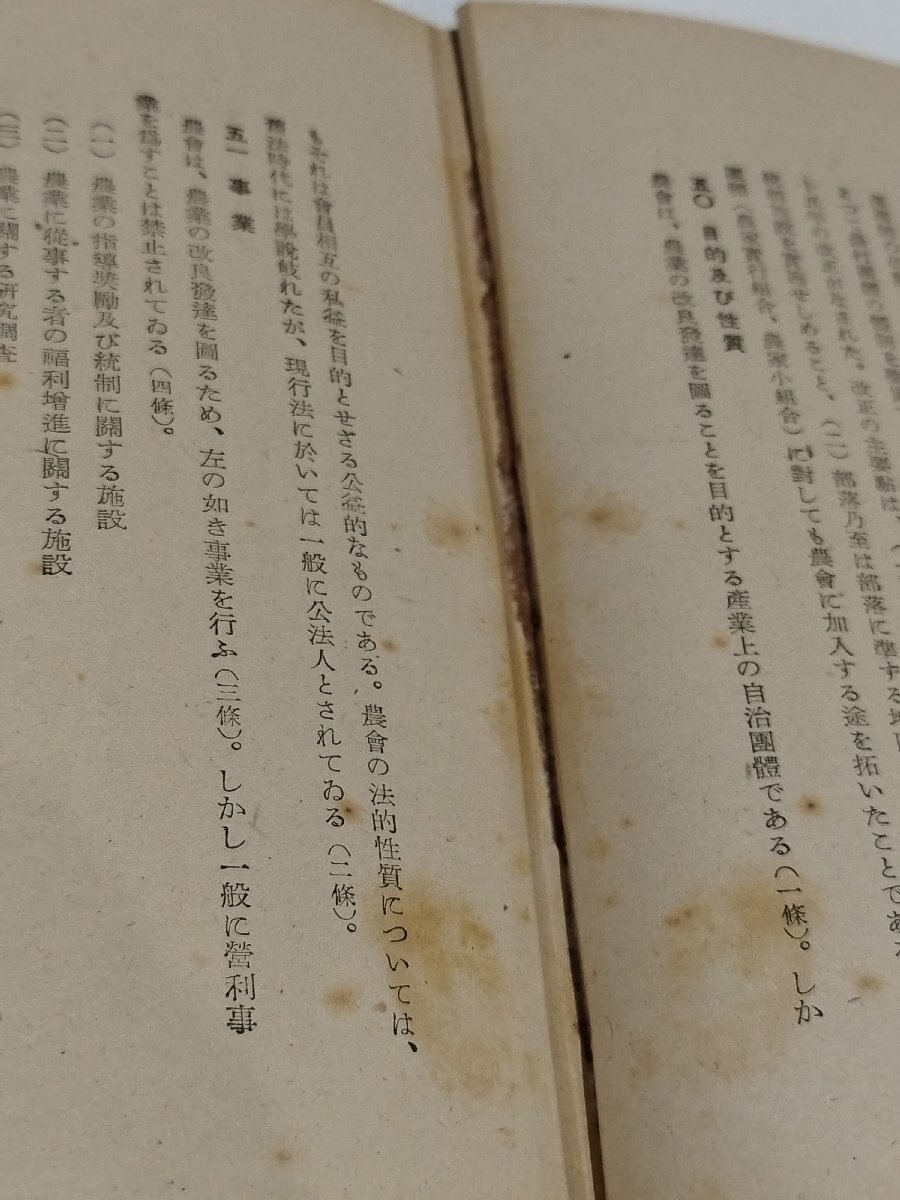 まつて農村團體の
も昨年の改正がなされた。改正の主要點は、
統制施設を實施せしめること、(二)部落乃至は部落に準する地
團體(農事實行組合、農家小組合)に對しても農會に加入する途を拓いたことである
五〇 目的及び性質
農會は、農業の改良發達を圖ることを目的とする產業上の自治團體である(一條)。しか
もそれは會員相互の私益を目的とせざる公益的なものである。農會の法的性質については、
舊法時代には學說岐れたが、現行法に於いては一般に公法人とされてゐる(二條)。
五一 事業
農會は、農業の改良發達を圖るため、左の如き事業を行ふ(三條)。しかし一般に營利事
業を爲すことは禁止されてゐる(四條)。
(一) 農業の指導奬勵及び統制に關する施設
(二) 農業に從事する者の福利增進に關する施設
(三) 農業に關する硏究調査